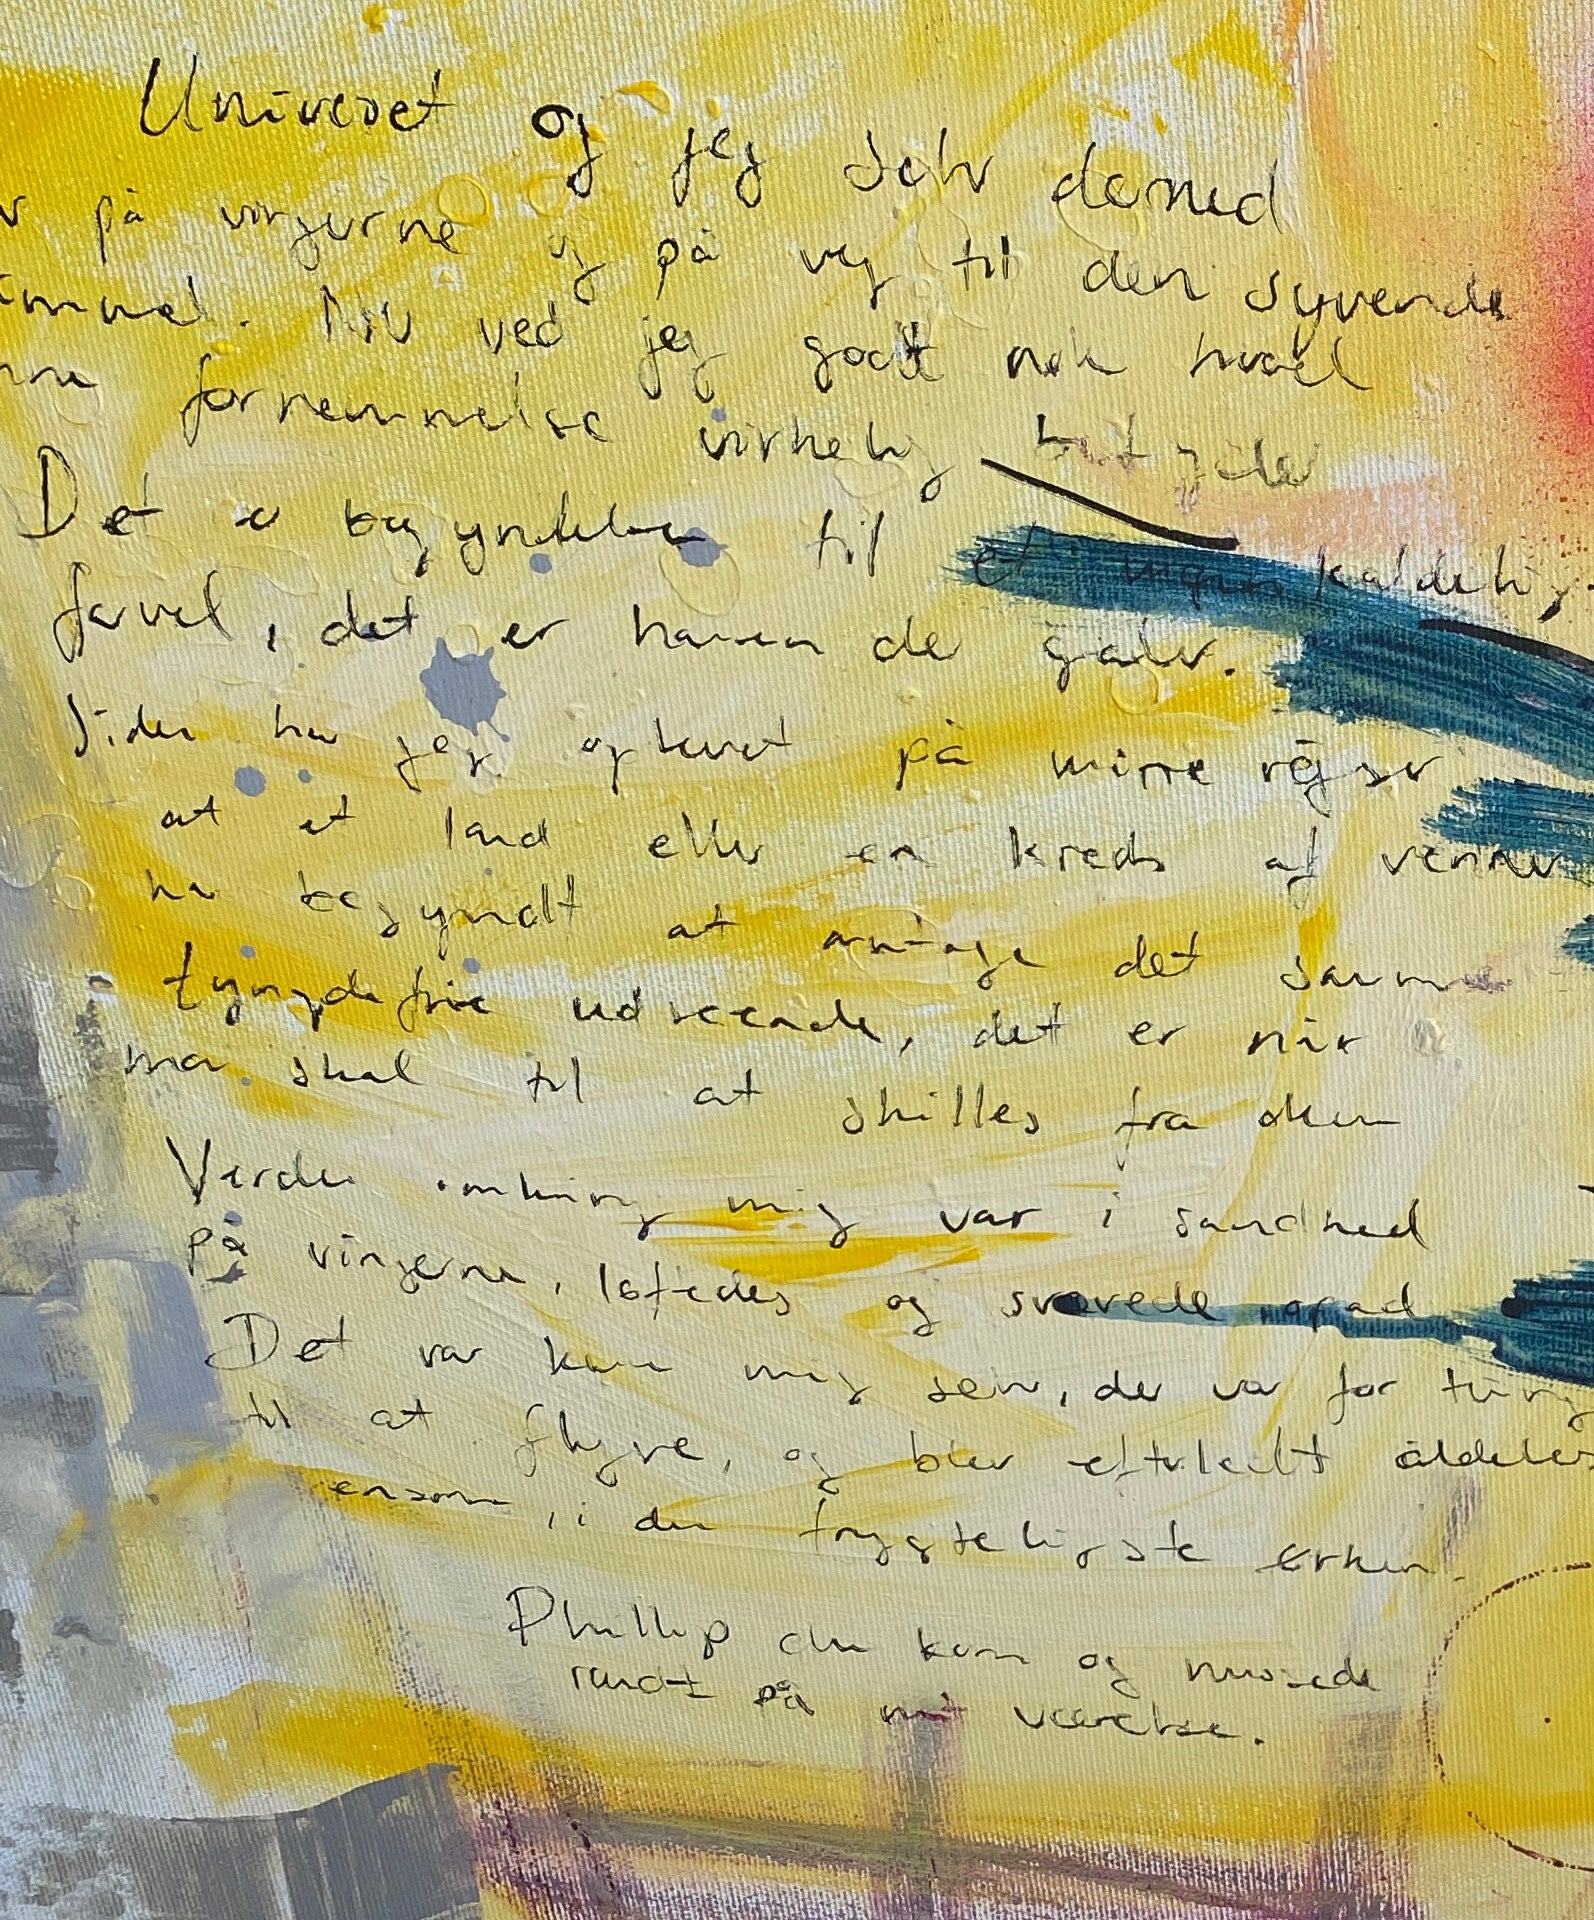 Universet og jeg selv dermed
på vingerne og på vej til den syvende
immel. Nu ved jeg godt nok hvad
fornemmelse virkelig betyder
Det er begyndelsen til et uigenkaldelig
farvel, det er hanen der galer.
Siden har jeg oplevet på mine rejser
at et land eller en kreds af venner
har begyndt at antage det samme
tyngdefrie udseende, det er når
man skal til at skilles fra dem
Verden omkring mig var i sandhed
på vingerne, løftedes og svævede opad
Det var kun mig selv, der var for tung
til at flyve, og blev efterladt aldeles
ensom, i den frygteligste ørken.
Phillip du kom og nussede
rundt på mit værelse.